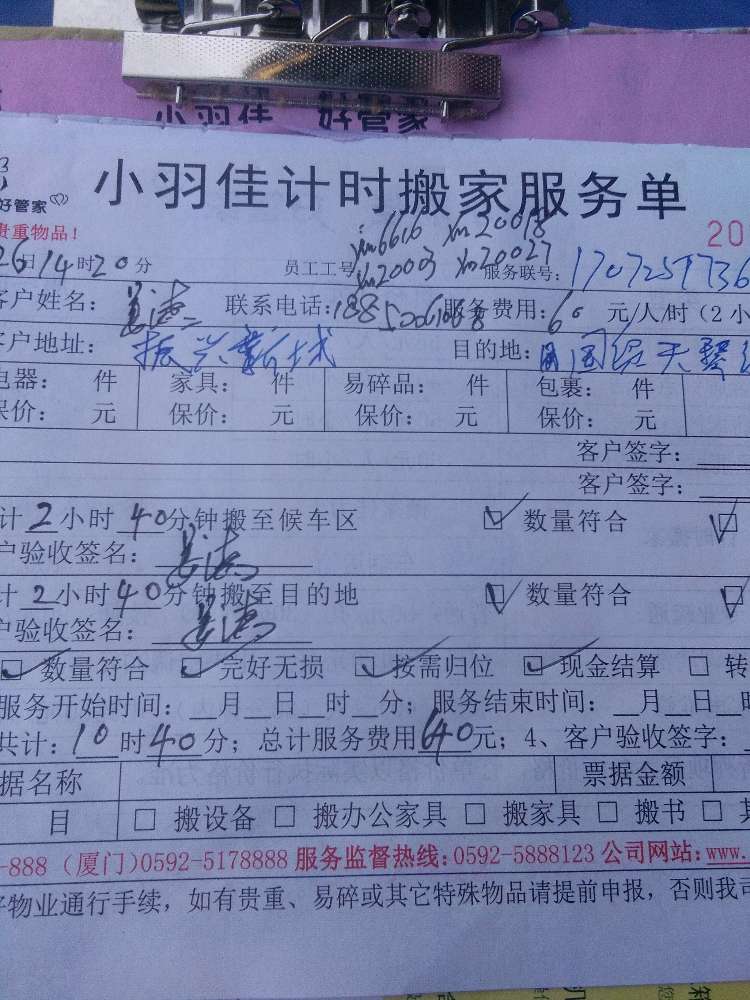 小羽佳 好管家
小羽佳计时搬家服务单
好管家
贵重物品！
20
26日14时20分 员工工号 xm6616 xm20018
xm20003 xm20027 服务联号：
客户姓名： 联系电话： 服务费用：60元/人/时（2小
客户地址：振兴新城 目的地：
电器： 件 家具： 件 易碎品： 件 包裹： 件
保价： 元 保价： 元 保价： 元 保价： 元
客户签字：
客户签字：
计2小时40分钟搬至候车区 ☑ 数量符合 ☑
户验收签名：
计2小时40分钟搬至目的地 ☑ 数量符合 ☑
户验收签名：
☑数量符合 ☑完好无损 ☑按需归位 ☑现金结算 □转
服务开始时间：__月__日__时__分；服务结束时间：__月__日__时
共计：10时40分；总计服务费用640元；4、客户验收签字：
据名称 票据金额
目 □ 搬设备 □ 搬办公家具 □ 搬家具 □ 搬书 □
-888（厦门）0592-5178888 服务监督热线：0592-5888123 公司网站：www.
物业通行手续，如有贵重、易碎或其它特殊物品请提前申报，否则我司